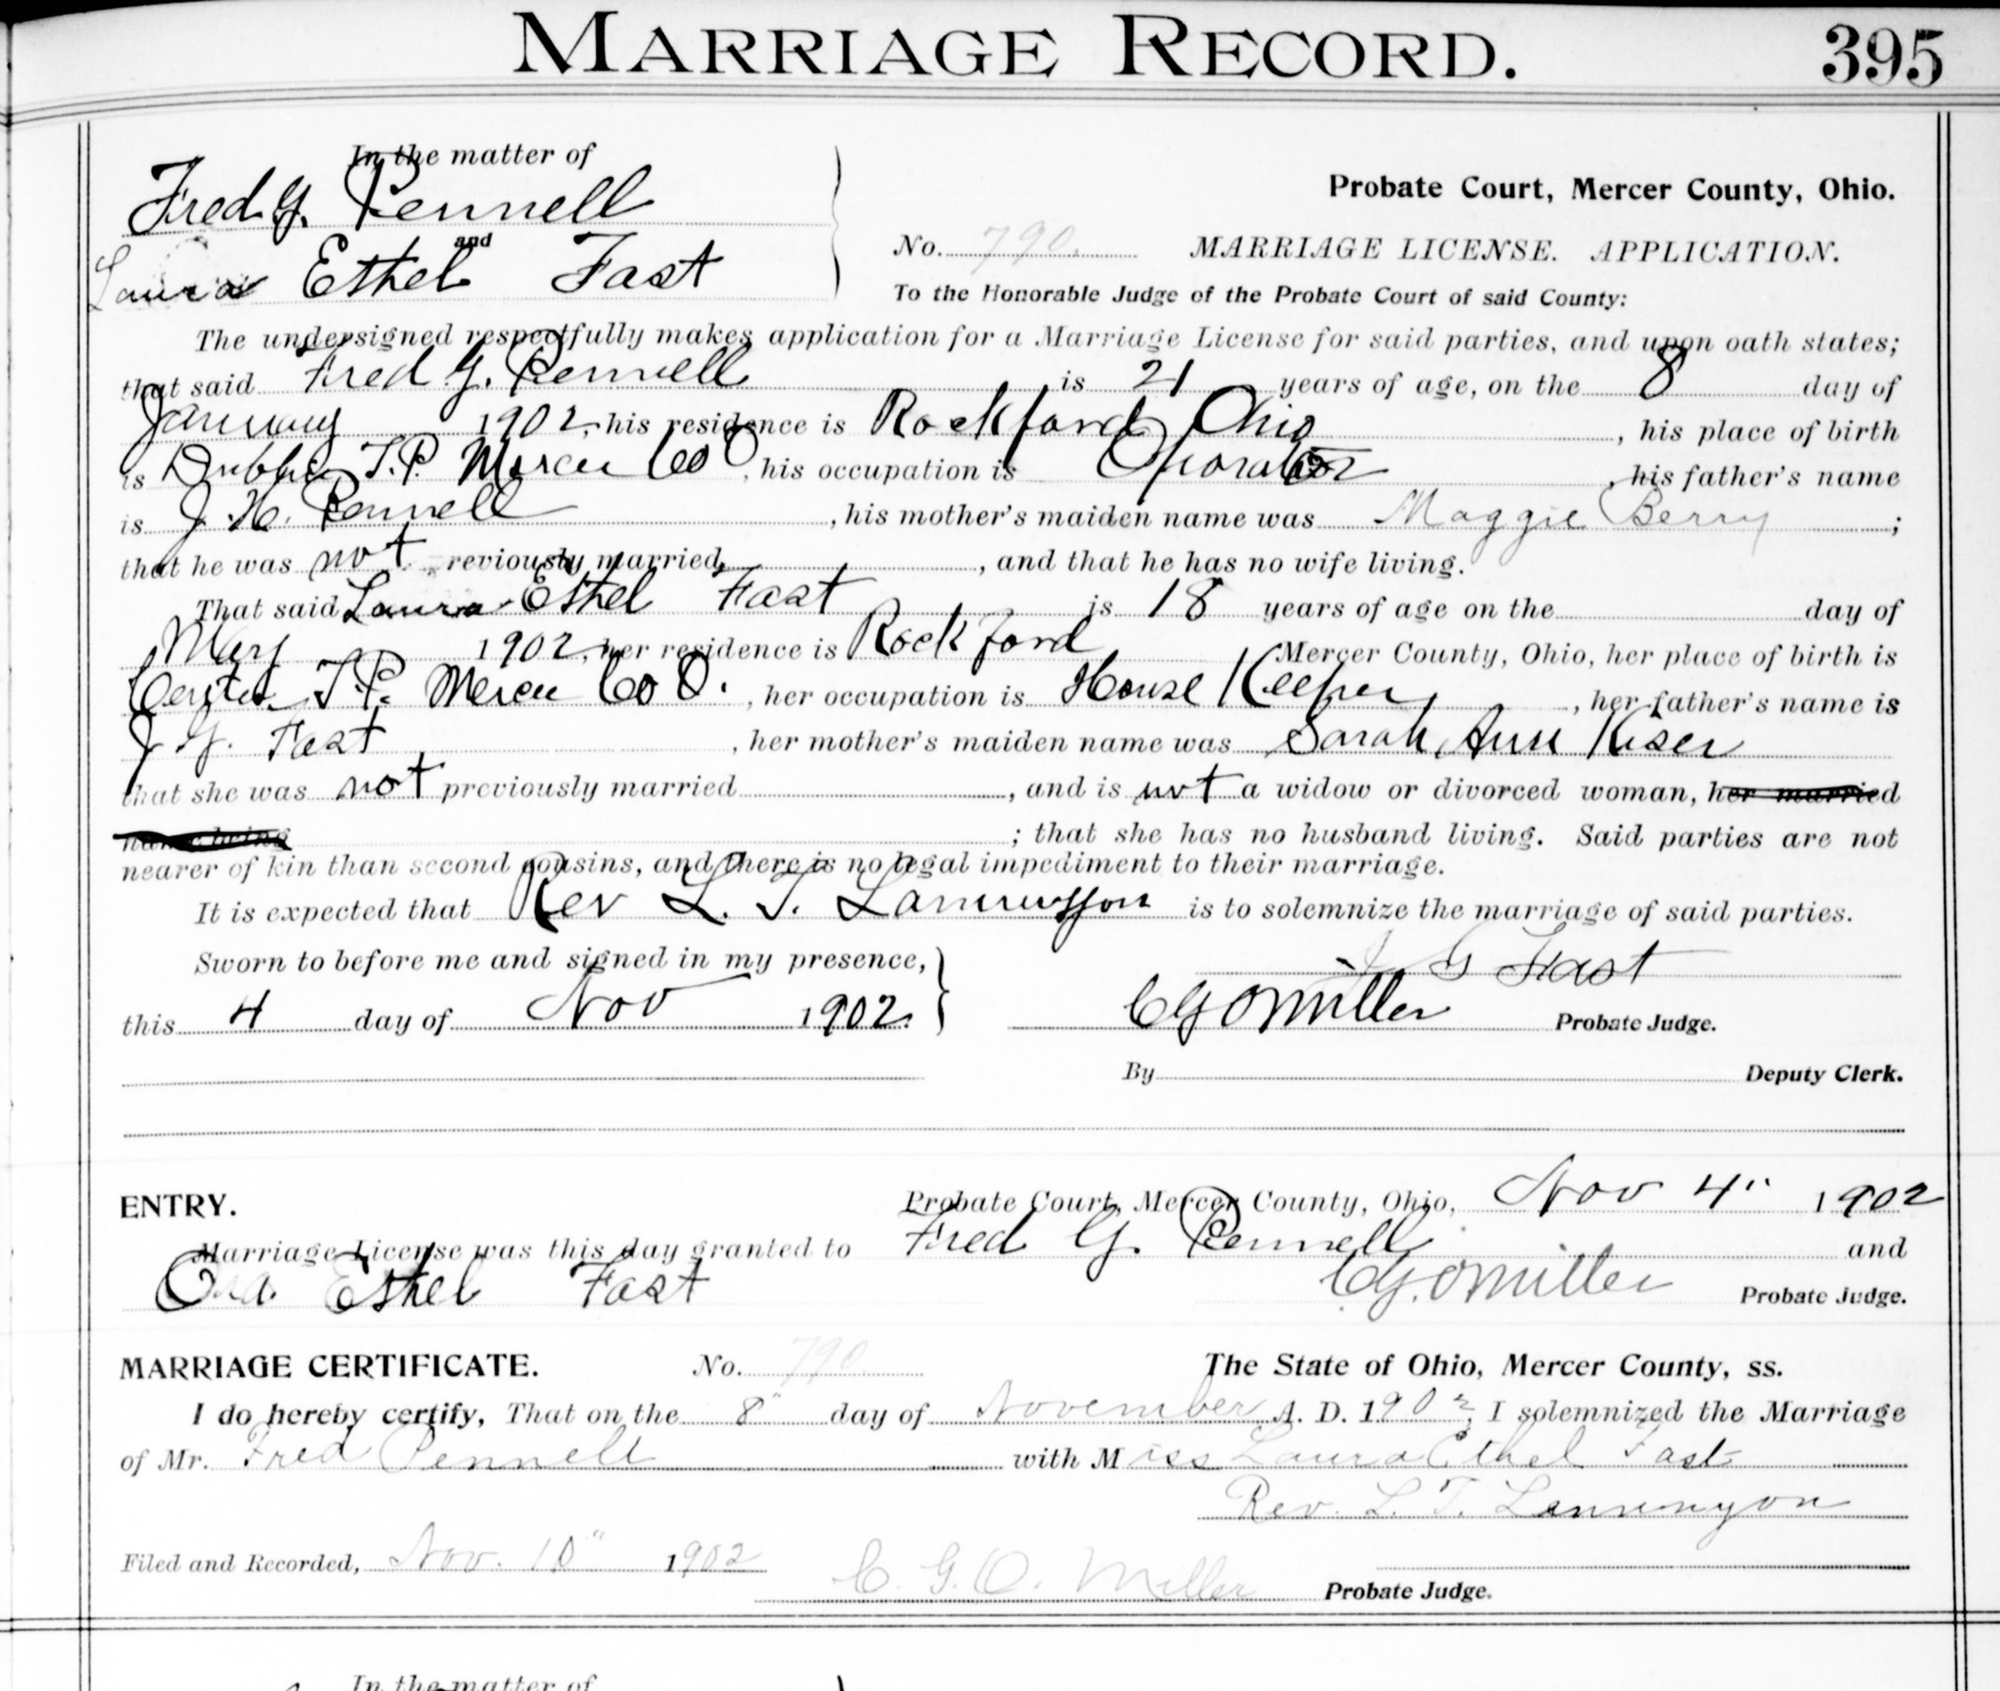 MARRIAGE RECORD. 395
In the matter of
Fred G. Pennell
Probate Court, Mercer County, Ohio.
and
Laura Ethel Fast
No. 790. MARRIAGE LICENSE. APPLICATION.
To the Honorable Judge of the Probate Court of said County:
The undersigned respectfully makes application for a Marriage License for said parties, and upon oath states;
that said Fred G. Pennell is 21 years of age, on the 8 day of
January 1902, his residence is Rockford Ohio, his place of birth
is Dublin T.P. Mercer Co O, his occupation is Operator, his father's name
is J. H. Pennell, his mother's maiden name was Maggie Berry;
that he was not reviously married, and that he has no wife living.
That said Laura Ethel Fast is 18 years of age on the day of
May 1902, her residence is Rockford Mercer County, Ohio, her place of birth is
Center T.P. Mercer Co O., her occupation is House Keeper, her father's name is
J. G. Fast, her mother's maiden name was Sarah Ann Kiser
that she was not previously married, and is not a widow or divorced woman, her married
name being; that she has no husband living. Said parties are not
nearer of kin than second cousins, and there is no legal impediment to their marriage.
It is expected that Rev L. T. is to solemnize the marriage of said parties.
Sworn to before me and signed in my presence,
J G Fast
this 4 day of Nov 1902. C G O Miller Probate Judge.
By Deputy Clerk.
ENTRY. Probate Court, Mercer County, Ohio, Nov 4" 1902
Marriage License was this day granted to Fred G. Pennell and
Ethel Fast C.G.O Miller Probate Judge.
MARRIAGE CERTIFICATE. No. 790 The State of Ohio, Mercer County, ss.
I do hereby certify, That on the 8" day of November A. D. 1902, I solemnized the Marriage
of Mr. Fred Pennell with Miss Laura Ethel Fast
Rev. L. T.
Filed and Recorded, Nov. 10" 1902
C. G. O. Miller Probate Judge.
In the matter of